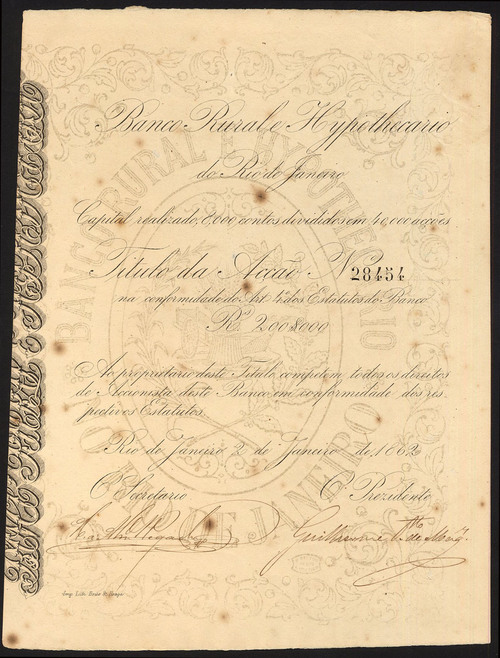 Banco Rural e Hypothecario
do Rio de Janeiro
Capital realizado 8,000 contos divididos em 40,000 acções
Titulo da Acção Nº 28454
na conformidade do Art. 4º dos Estatutos do Banco
Rs. 200$000
Ao proprietario deste Titulo competem todos os direitos
de Accionista deste Banco em conformidade dos res
pectivos Estatutos.
Rio de Janeiro 2 de Janeiro de 1862
O Secretario O Prezidente
Guilherme
BANCO RURAL E HYPOTHECARIO
DO RIO DE JANEIRO
Imp. Lith.